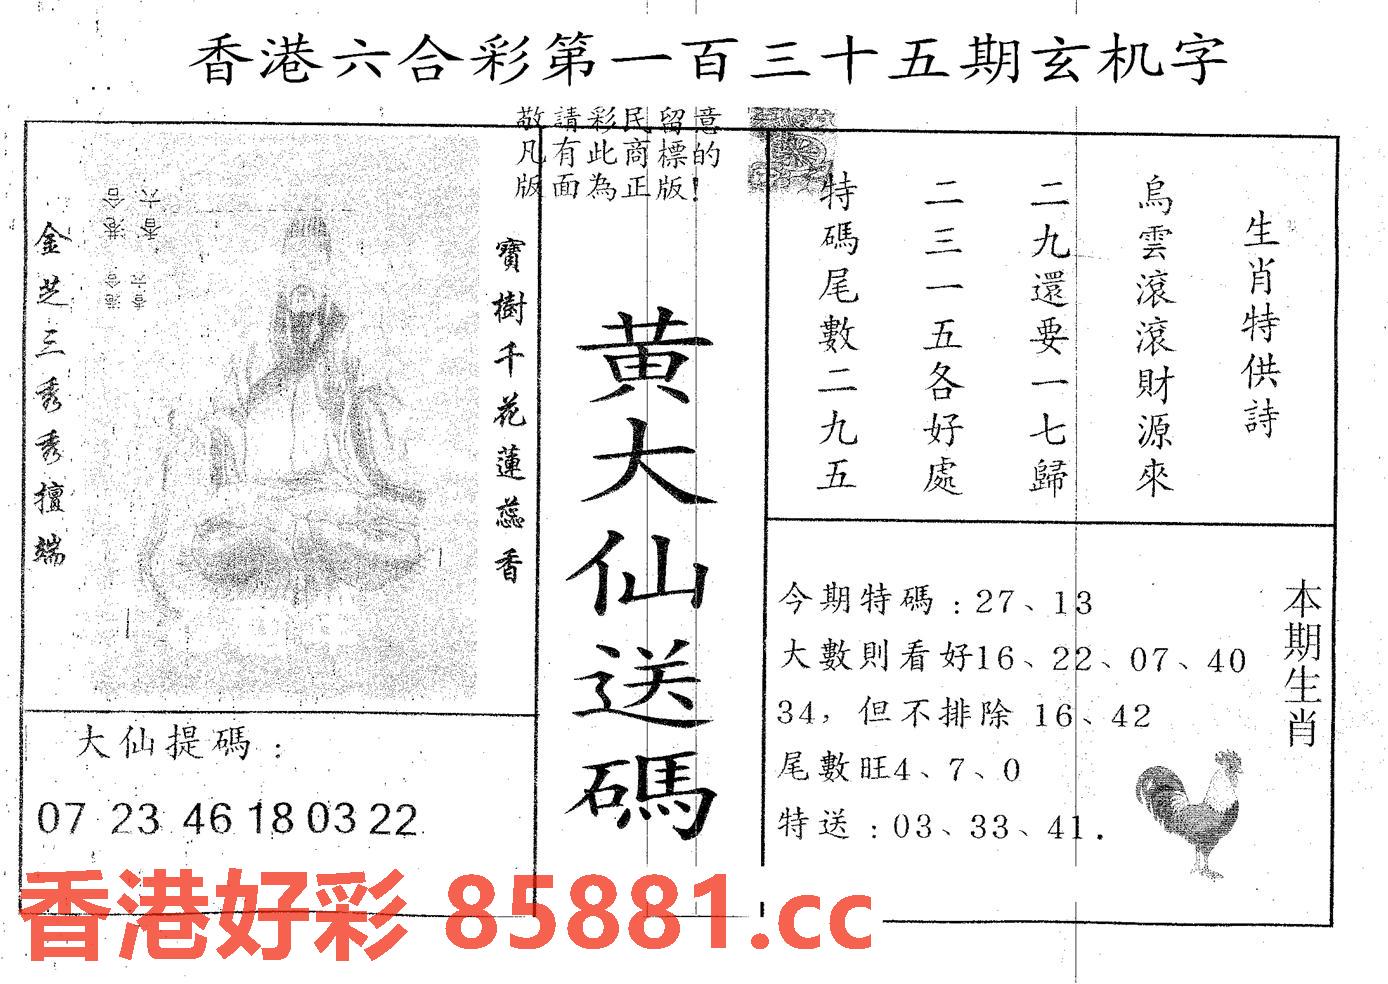 香港六合彩第一百三十五期玄机字
敬請彩民留意
凡有此商標的
版面為正版!
金芝三秀秀擅端
寶樹千花蓮蕊香
黄大仙送碼
生肖特供詩
烏雲滾滾財源來
二九還要一七歸
二三一五各好處
特碼尾數二九五
本期生肖
今期特碼:27、13
大數則看好16、22、07、40
34,但不排除 16、42
尾數旺4、7、0
特送:03、33、41.
大仙提碼:
07 23 46 18 03 22
香港好彩 85881.cc